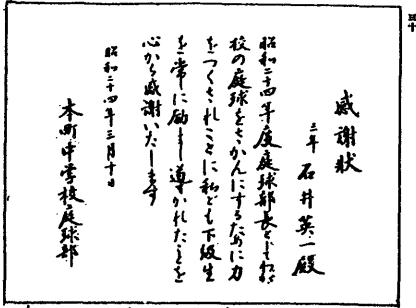 四十
感謝状
三年 石井英一殿
昭和二十四年度庭球部長としてわが
校の庭球をさかんにするために力
をつくされことに私ども下級生
を常に励まし導かれたことを
心から感謝いたします
昭和二十四年三月十日
本町中学校庭球部